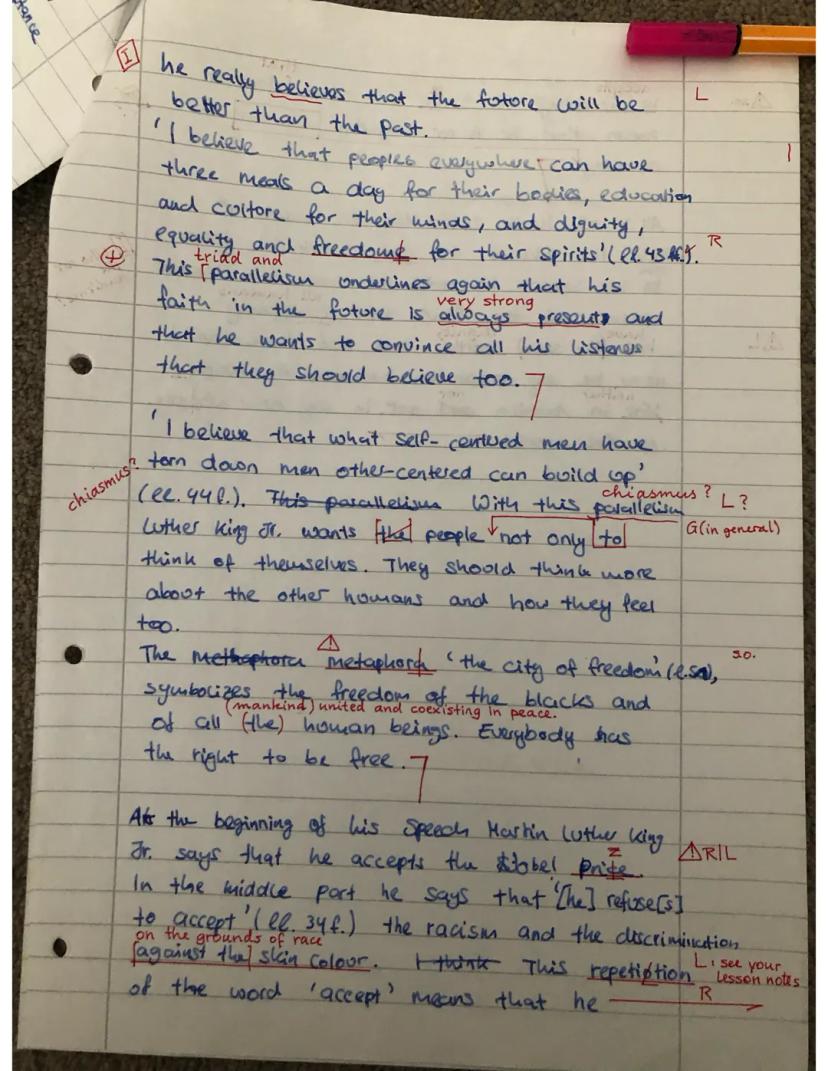 tance
I
he really believes that the future will be
L
better than the past.
'I believe that peoples everywhere can have
three meals a day for their bodies, education
and culture for their minds, and dignity,
equality and freedom for their spirits' (ll. 43 ff.).
R
+
triad and
This parallelism underlines again that his
very strong
faith in the future is always present, and
that he wants to convince all his listeners
that they should believe too.
'I believe that what self-centered men have
torn down men other-centered can build up'
chiasmus?
(ll. 44 f.). This parallelism With this parallelism
chiasmus? L?
Luther King Jr. wants [the] people not only to
G (in general)
think of themselves. They should think more
about the other humans and how they feel
too.
The methaphora metaphor 'the city of freedom' (l. 50),
50.
symbolizes the freedom of the blacks and
(mankind) united and coexisting in peace.
of all (the) human beings. Everybody has
the right to be free.
At the beginning of his speech Martin Luther King
Jr. says that he accepts the Nobel price.
z
R/L
In the middle part he says that '[he] refuse[s]
to accept' (ll. 34 f.) the racism and the discrimination
on the grounds of race
against the skin colour. I think This repetiption
L: see your
lesson notes
of the word 'accept' means that he
R